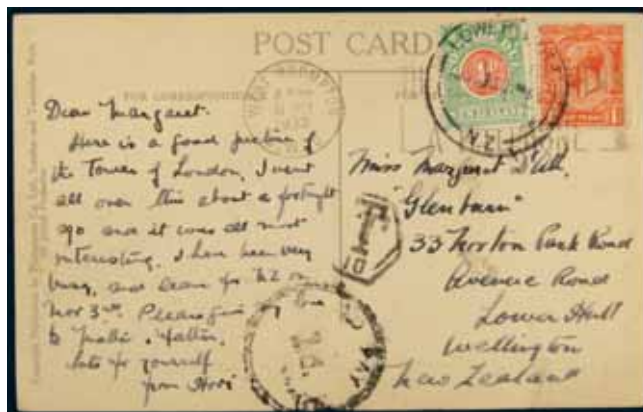 POST CARD
FOR CORRESPONDENCE
Dear Margaret.
Here is a good picture of
the Tower of London, I went
all over this about a fortnight
ago and it was all most
interesting. I have been very
busy, and leave for NZ on
Nov 3rd. Please give my love
to
lots for yourself
from
LOWER HUTT
N.Z.
1d
Miss Margaret
"Glenbarn"
33 Norton Park Road
Avenue Road
Lower Hutt
Wellington
New Zealand